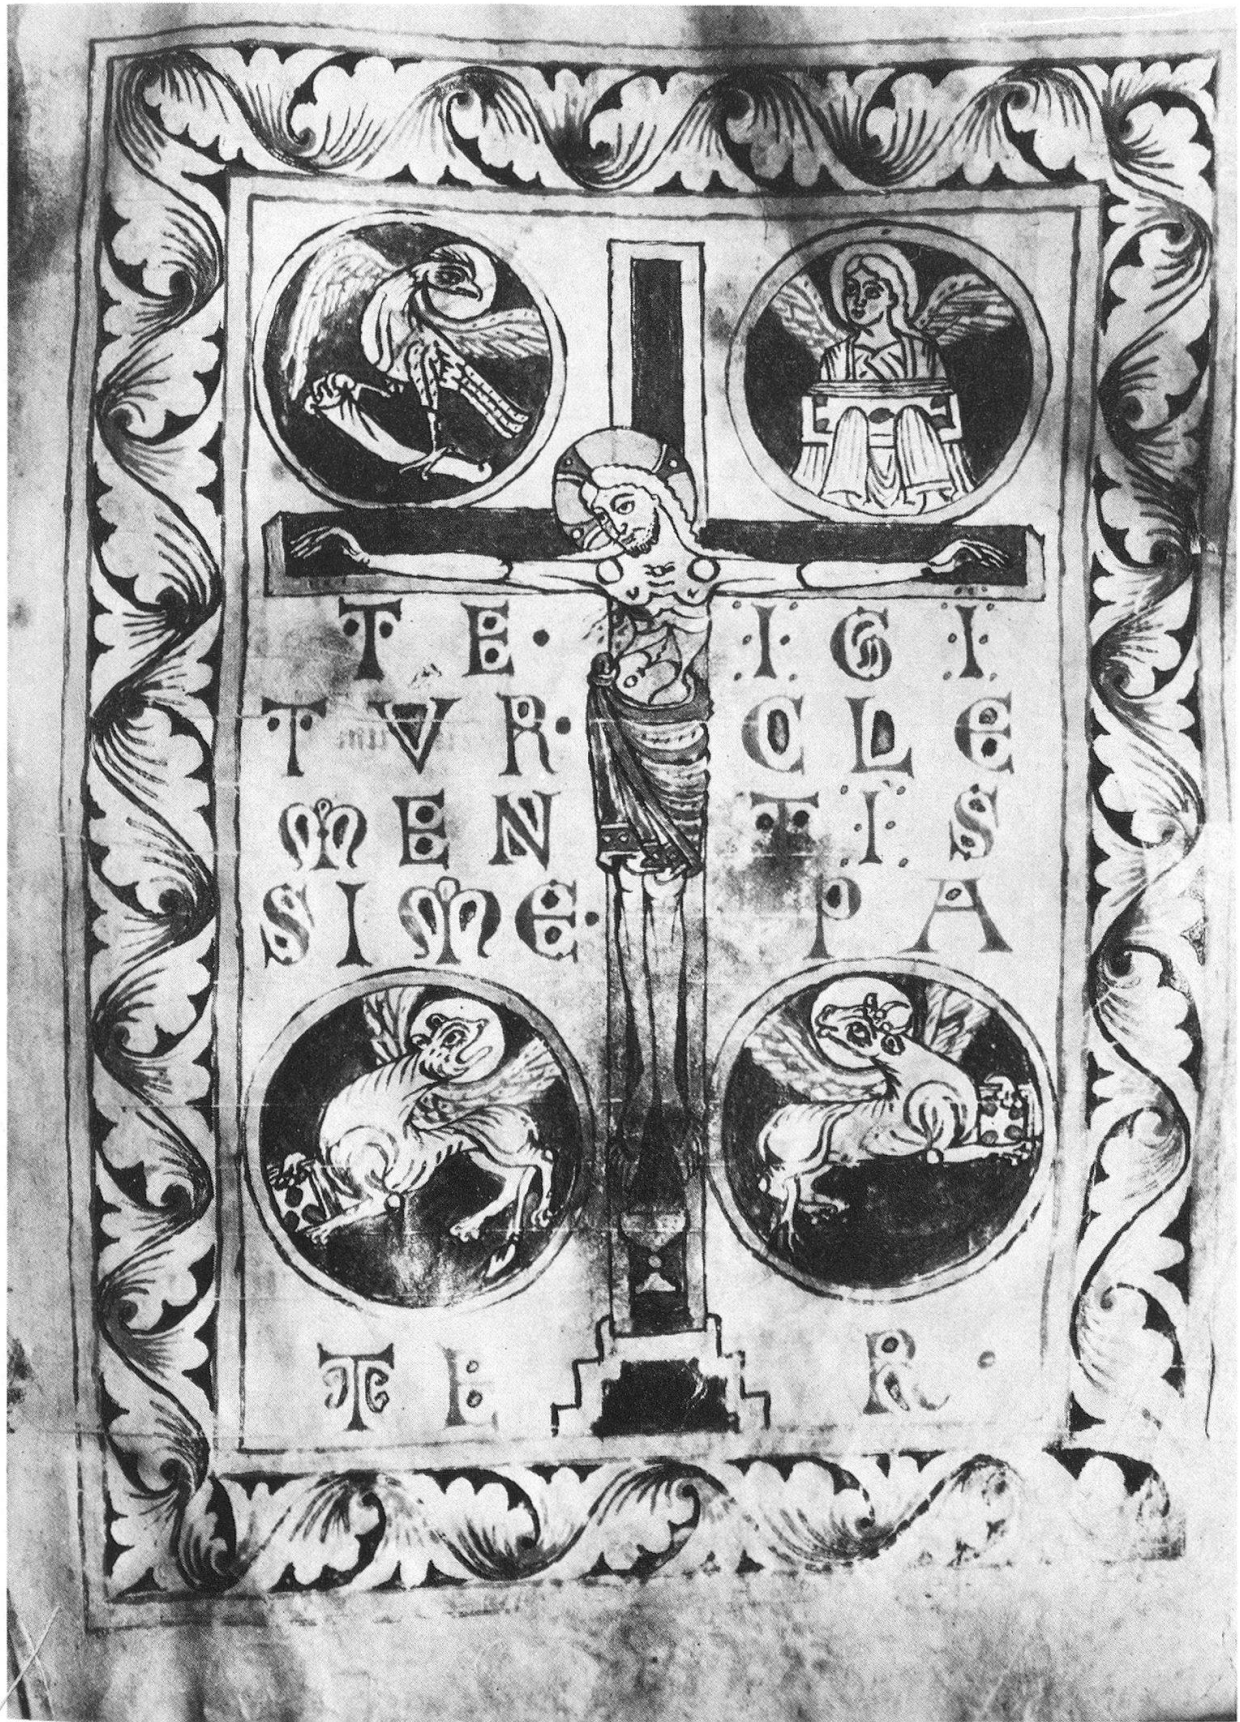 TE· IGI
TVR· CLE
MEN TIS
SIME· PA
TE R·